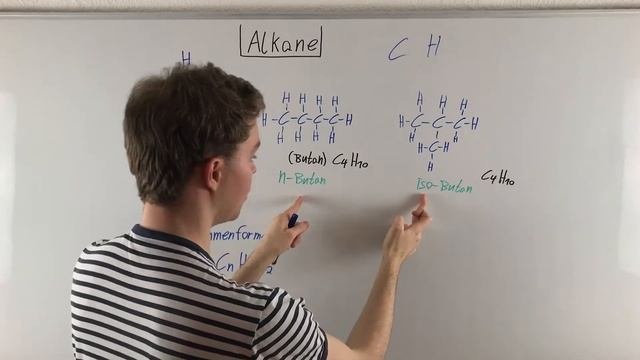 Alkane
C H
H
H H H H
H-C-C-C-C-H
H H H H
(Butan) C4H10
n-Butan
H H H
H-C-C-C-H
H H
H-C-H
H
Iso-Butan
C4H10